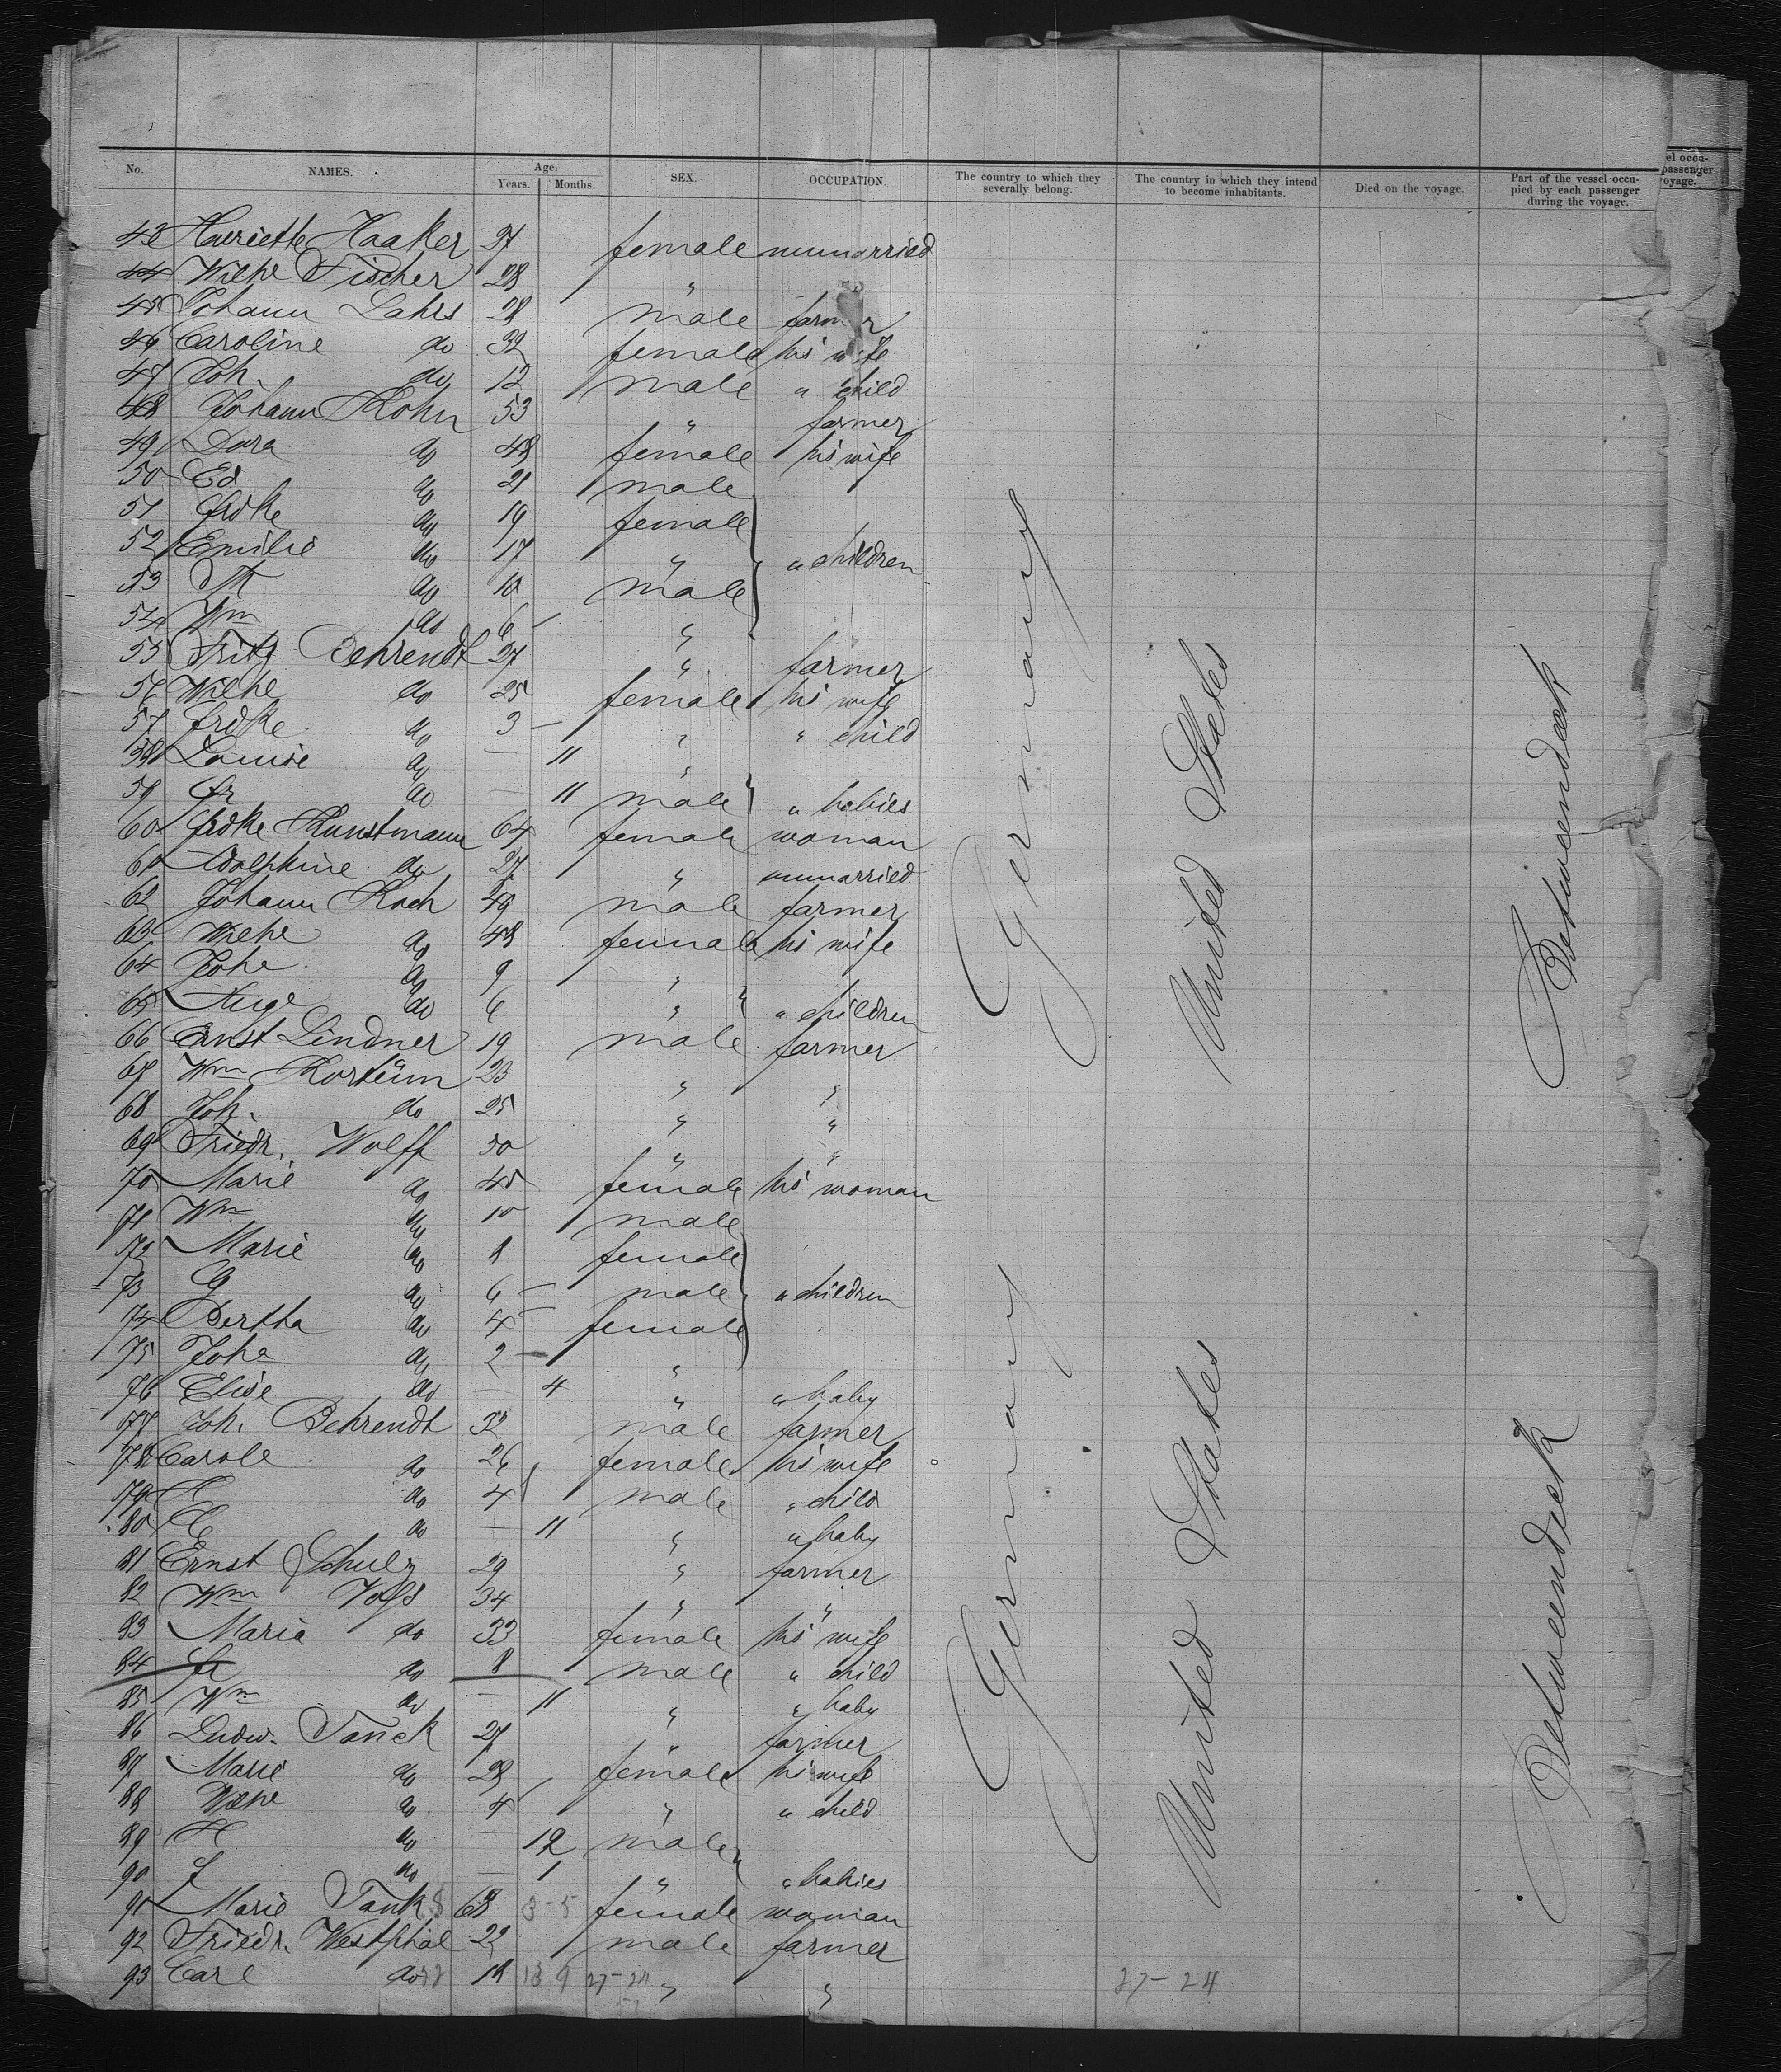 No. NAMES. Age. Years. Months. SEX. OCCUPATION. The country to which they severally belong. The country in which they intend to become inhabitants. Died on the voyage. Part of the vessel occupied by each passenger during the voyage.
43 Henriette Haaker 27 female unmarried
44 Wilhe Fischer 28 "
45 Johann Lahrs 28 male farmer
46 Caroline do 32 female his wife
47 Joh. do 12 male " child
48 Johann Kohn 53 " farmer
49 Dora do 48 female his wife
50 Ed do 21 male
51 Frdke do 19 female
52 Emilie do 17 " " children
53 do 10 male
54 Wm do 6 "
55 Fritz Behrendt 27 " farmer
56 Wilhe do 25 female his wife
57 Frdke do 3 " " child
58 Louise do — 11 "
59 Fr do — 11 male " babies
60 Frdke Kunstmann 64 female woman
61 Adolphine do 27 " unmarried
62 Johann Koch 49 male farmer
63 Wilhe do 48 female his wife
64 Johe do 9 "
65 Auge do 6 " " children
66 Ernst Lindner 19 male farmer
67 Wm Kortüm 23 " "
68 Joh. do 25 " "
69 Friedr. Wolff 50 " "
70 Marie do 45 female his woman
71 Wm do 10 male
72 Marie do female
73 G do 6 male " children
74 Bertha do 4 female
75 Johe do 2 "
76 Elise do — 4 " " baby
77 Joh. Behrendt 32 male farmer
78 Carole do 26 female his wife
79 do 4 male " child
80 do — 11 " " baby
81 Ernst Schulz 29 " farmer
82 Wm Vogs 34 " "
83 Maria do 33 female his wife
84 Fr do 8 male " child
85 Wm do — 11 " " baby
86 Ludw. Tanck 27 " farmer
87 Marie do 28 female his wife
88 Wilhe do 4 " " child
89 H do — 12 male
90 J do — 1 " " babies
91 Marie Tank 68 3-5 female woman
92 Friedr. Westphal 22 male farmer
93 Carl do 18 27-24 " "
27-24
Germany
United States
Betweendeck
Germany
United States
Betweendeck